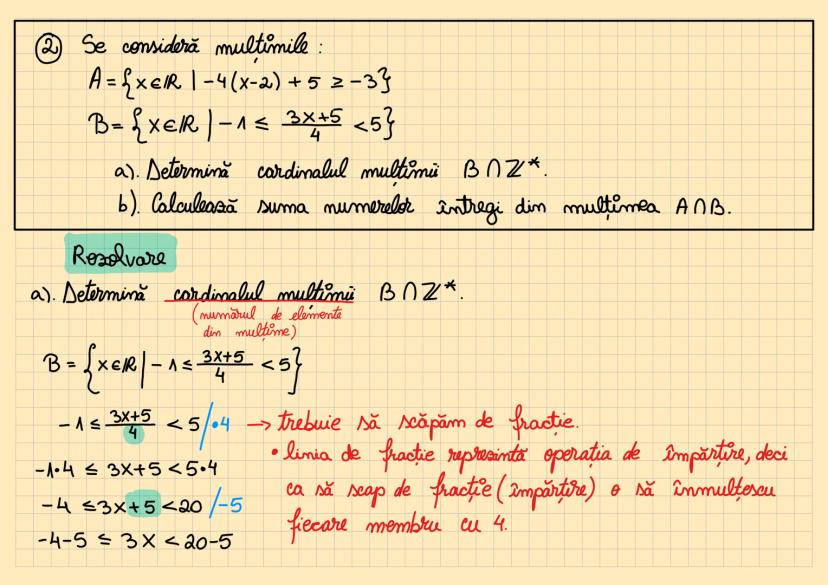 ② Se consideră mulțimile :
A = {x∈ℝ | -4(x-2) + 5 ≥ -3}
B = {x∈ℝ | -1 ≤ (3x+5)/4 < 5}
a). Determină cardinalul mulțimii B∩ℤ*.
b). Calculează suma numerelor întregi din mulțimea A∩B.
Rezolvare
a). Determină cardinalul mulțimii B∩ℤ*.
(numărul de elemente
din mulțime)
B = {x∈ℝ | -1 ≤ (3x+5)/4 < 5}
-1 ≤ (3x+5)/4 < 5 /·4 → trebuie să scăpăm de fracție.
• linia de fracție reprezintă operația de împărțire, deci
-1·4 ≤ 3x+5 < 5·4
ca să scap de fracție (împărțire) o să înmulțescu
-4 ≤ 3x+5 < 20 /-5
fiecare membru cu 4.
-4-5 ≤ 3x < 20-5